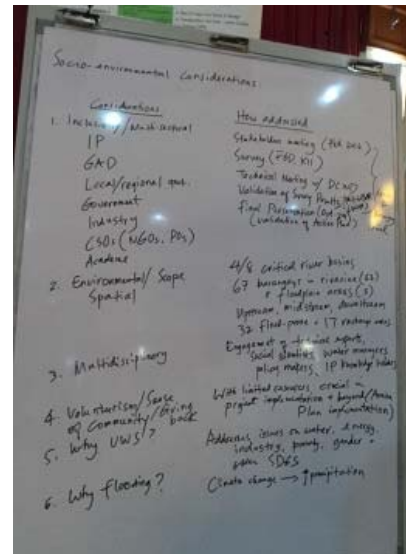 Socio-environmental Considerations:
Considerations
1. Inclusivity/Multi-sectoral
IP
GAD
Local/regional govt.
Government
Industry
CSOs (NGOs, POs)
Academe
2. Environmental/Scope
Spatial
3. Multidisciplinary
4. Volunteerism/Sense
of Community/Giving
back
5. Why UWS?
6. Why flooding?
How addressed
Stakeholders meeting (Feb
Survey (FGD, KII)
Technical Meeting w/
Validation of Survey Results
Final Presentation
(Validation of Action Plan)
4/8 critical river basins
67 barangays in riverine (62)
+ floodplain areas (5)
Upstream, midstream, downstream
32 flood-prone + 17 recharge areas
Engagement of technical experts,
Social scientists, water managers
policy makers, IP knowledge holders
With limited resources, crucial in
project implementation + beyond (Action
Plan implementation)
Addresses issues on water, energy,
industry, poverty, gender +
other SDGs
Climate change → ↑ precipitation